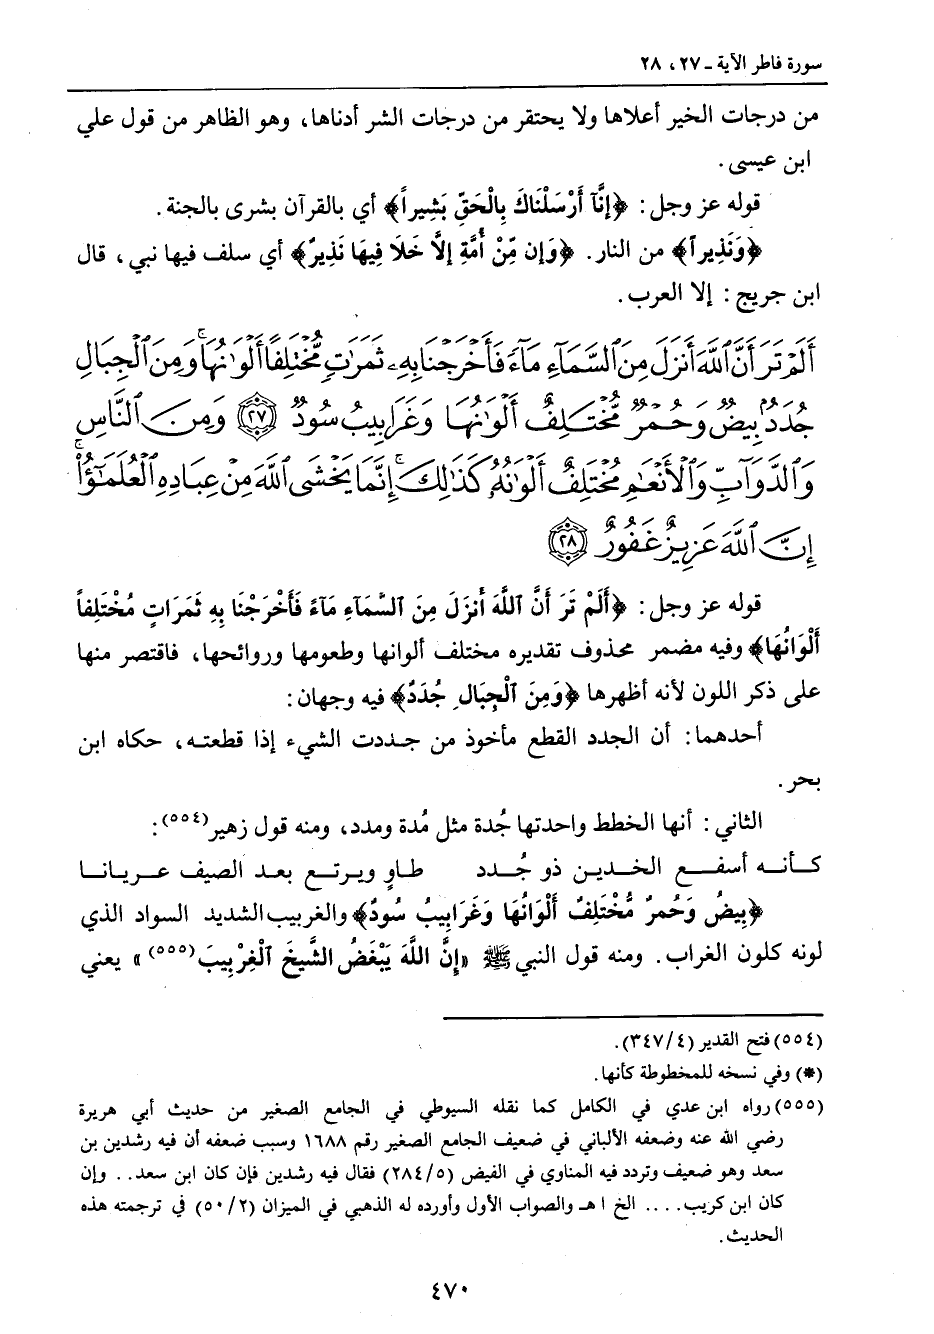 سورة فاطر الآية ـ ٢٧ ، ٢٨
من درجات الخير أعلاها ولا يحتقر من درجات الشر أدناها، وهو الظاهر من قول علي
ابن عيسى .
قوله عز وجل : ﴿إِنَّآ أَرْسَلْنَاكَ بِالْحَقِّ بَشِيراً﴾ أي بالقرآن بشرى بالجنة .
﴿وَنَذِيراً﴾ من النار. ﴿وَإِن مِّنْ أُمَّةٍ إِلَّا خَلَا فِيهَا نَذِيرٌ﴾ أي سلف فيها نبي ، قال
ابن جريج : إلا العرب .
أَلَمْ تَرَ أَنَّ ٱللَّهَ أَنزَلَ مِنَ ٱلسَّمَآءِ مَآءً فَأَخْرَجْنَا بِهِۦ ثَمَرَٰتٍ مُّخْتَلِفًا أَلْوَٰنُهَا ۚ وَمِنَ ٱلْجِبَالِ
جُدَدٌۢ بِيضٌ وَحُمْرٌ مُّخْتَلِفٌ أَلْوَٰنُهَا وَغَرَابِيبُ سُودٌ ﴿٢٧﴾ وَمِنَ ٱلنَّاسِ
وَٱلدَّوَآبِّ وَٱلْأَنْعَٰمِ مُخْتَلِفٌ أَلْوَٰنُهُۥ كَذَٰلِكَ ۗ إِنَّمَا يَخْشَى ٱللَّهَ مِنْ عِبَادِهِ ٱلْعُلَمَٰٓؤُا۟ ۗ
إِنَّ ٱللَّهَ عَزِيزٌ غَفُورٌ ﴿٢٨﴾
قوله عز وجل : ﴿أَلَمْ تَرَ أَنَّ ٱللَّهَ أَنزَلَ مِنَ ٱلسَّمَآءِ مَآءً فَأَخْرَجْنَا بِهِ ثَمَرَاتٍ مُخْتَلِفاً
أَلْوَانُهَا﴾ وفيه مضمر محذوف تقديره مختلف ألوانها وطعومها وروائحها، فاقتصر منها
على ذكر اللون لأنه أظهرها ﴿وَمِنَ ٱلْجِبَالِ جُدَدٌ﴾ فيه وجهان :
أحدهما : أن الجدد القطع مأخوذ من جددت الشيء إذا قطعته، حكاه ابن
بحر .
الثاني : أنها الخطط واحدتها جُدة مثل مُدة ومدد، ومنه قول زهير(٥٥٤) :
كأنه أسفع الخدين ذو جُدد طاوٍ ويرتع بعد الصيف عريانا
﴿بِيضٌ وَحُمرٌ مُّخْتَلِفٌ أَلْوَانُهَا وَغَرَابِيبُ سُودٌ﴾ والغربيب الشديد السواد الذي
لونه كلون الغراب . ومنه قول النبي ﷺ «إِنَّ اللَّهَ يَبْغَضُ الشَّيخَ ٱلْغِرْبِيبَ(٥٥٥)» يعني
(٥٥٤) فتح القدير (٣٤٧/٤).
(*) وفي نسخه للمخطوطة كأنها.
(٥٥٥) رواه ابن عدي في الكامل كما نقله السيوطي في الجامع الصغير من حديث أبي هريرة
رضي الله عنه وضعفه الألباني في ضعيف الجامع الصغير رقم ١٦٨٨ وسبب ضعفه أن فيه رشدين بن
سعد وهو ضعيف وتردد فيه المناوي في الفيض (٢٨٤/٥) فقال فيه رشدين فإن كان ابن سعد . . وإن
كان ابن كريب . . . . الخ ا هـ والصواب الأول وأورده له الذهبي في الميزان (٥٠/٢) في ترجمته هذه
الحديث .
٤٧٠